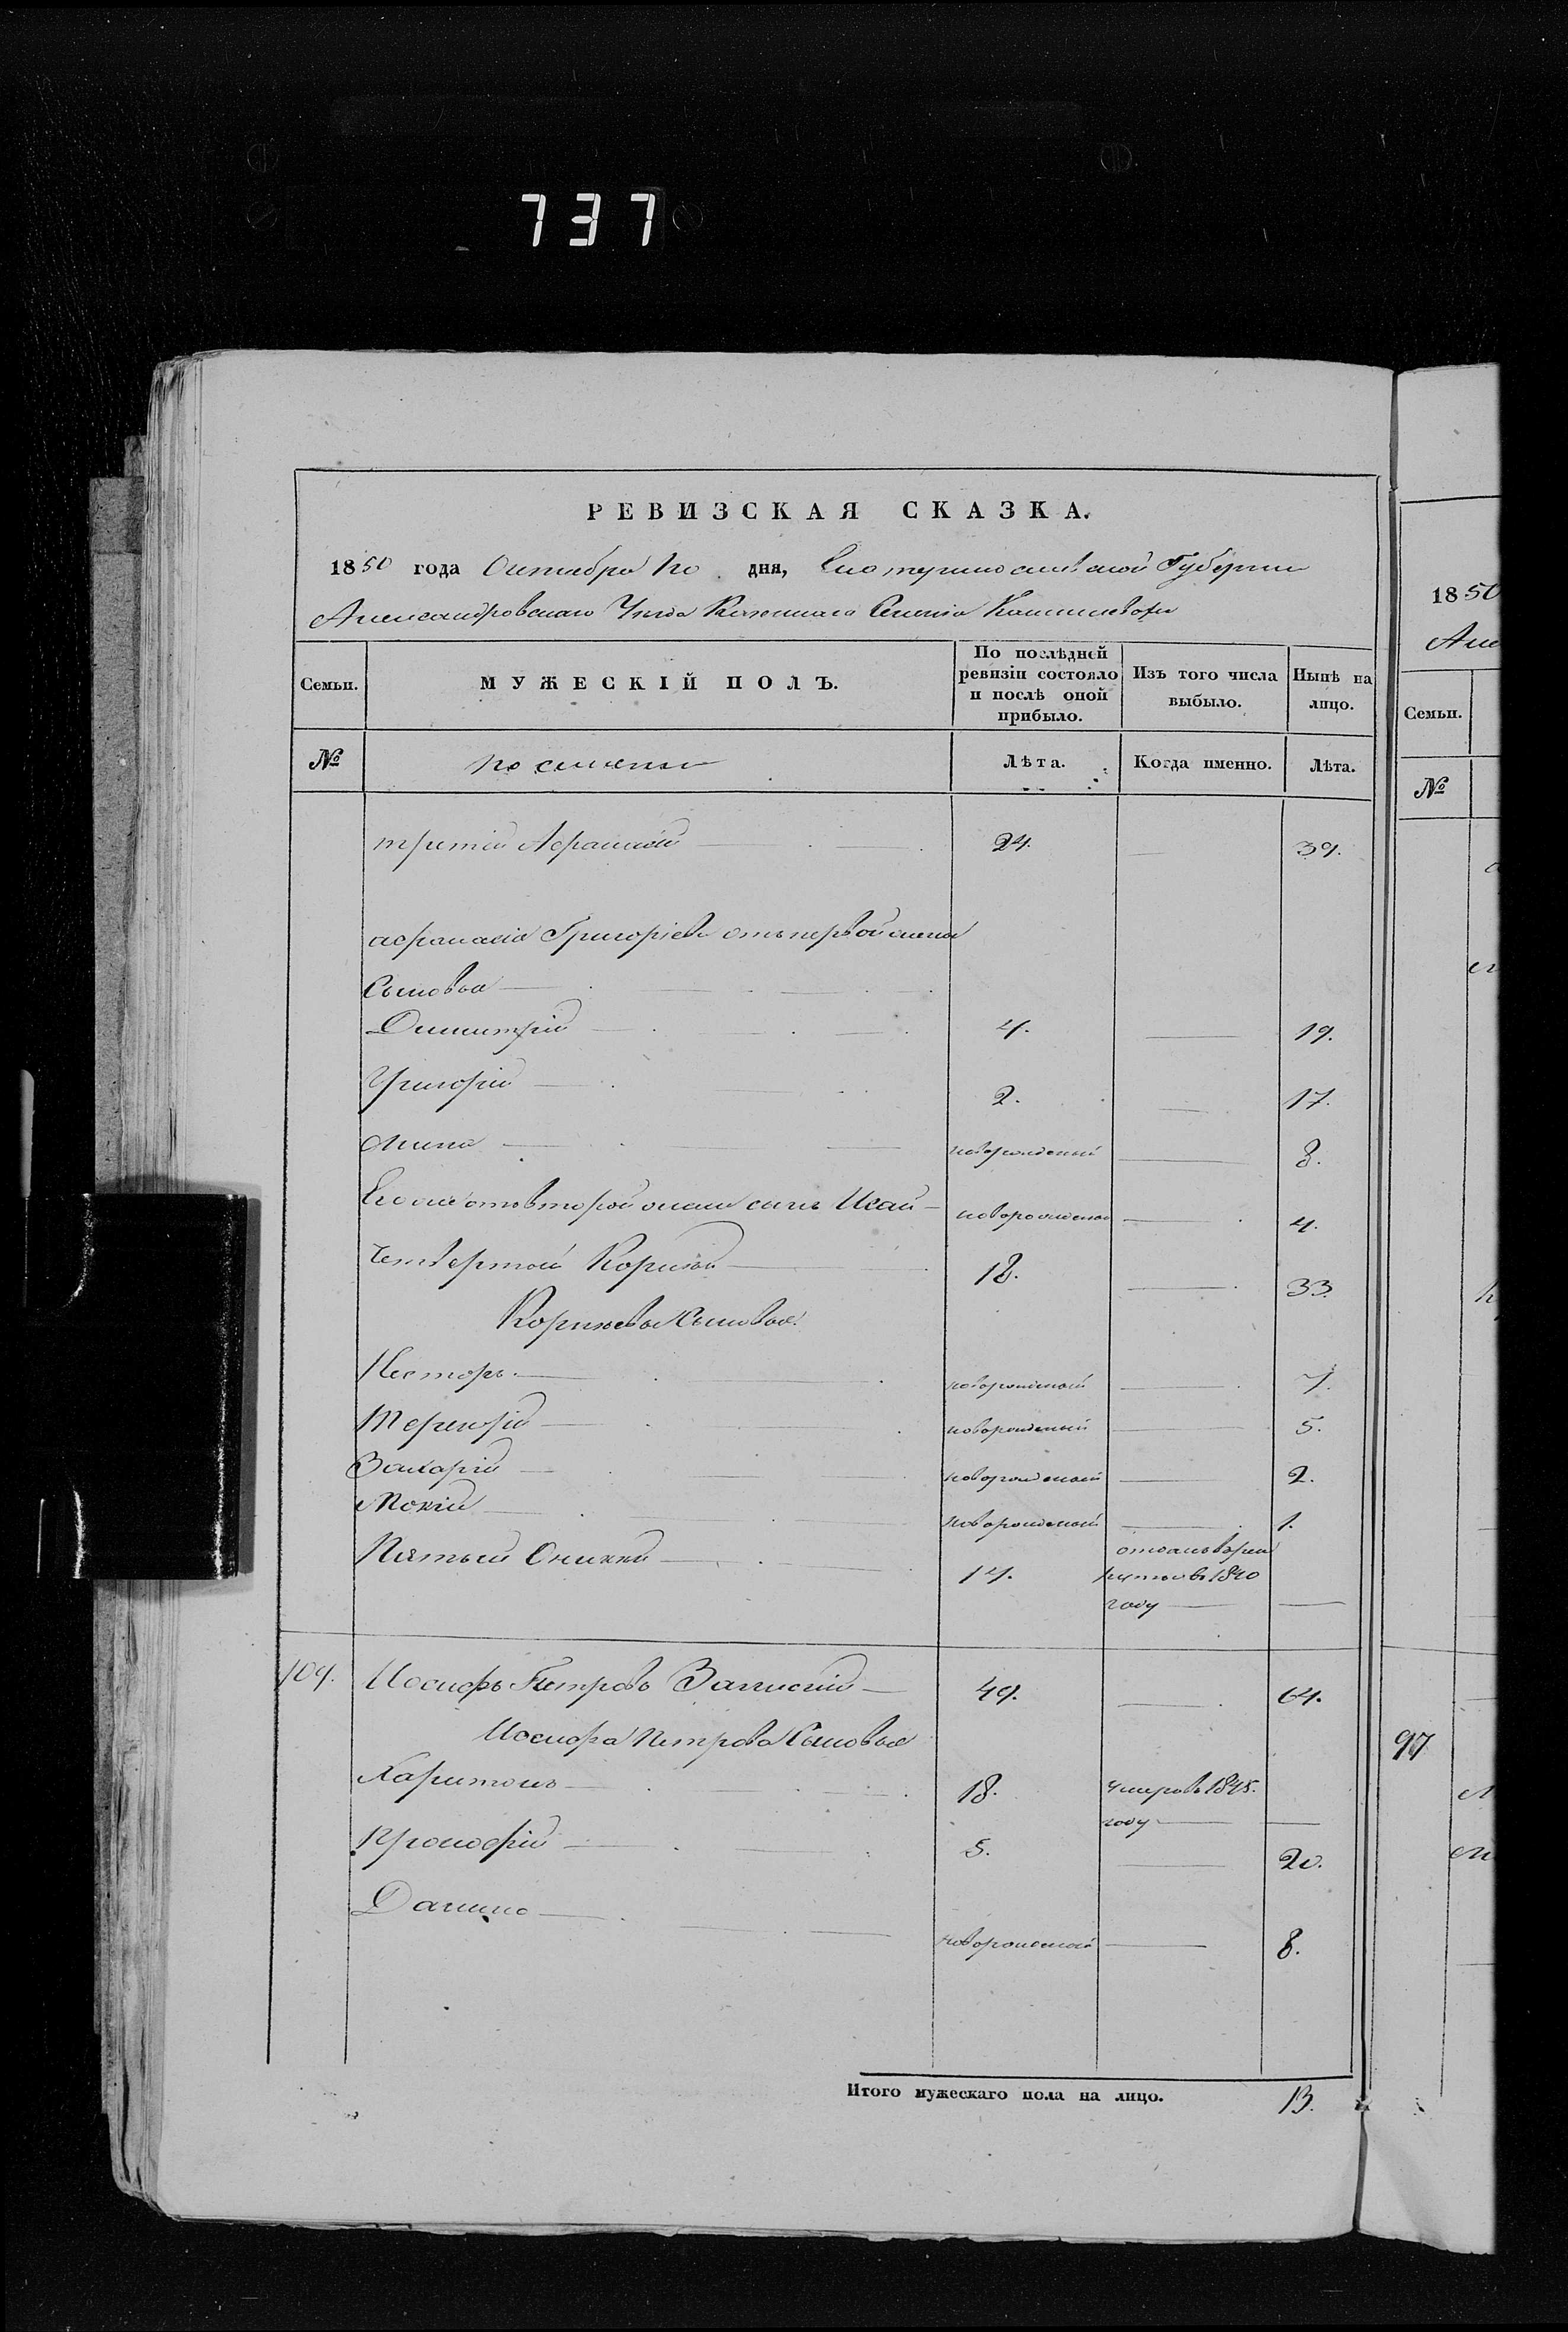 737
РЕВИЗСКАЯ СКАЗКА.
1850 года Октября 10 дня, Екатеринославской Губернии
Александровскаго Уезда Казеннаго Селенія
Семьи.
МУЖЕСКІЙ ПОЛЪ.
По послѣдней ревизіи состояло и послѣ оной прибыло.
Изъ того числа выбыло.
Нынѣ на лицо.
№
Лѣта.
Когда именно.
Лѣта.
третій Афанасій 24. 39.
Афанасія Григоріева отъ первой жены
Сыновья
Димитрій 4. 19.
Григорій 2. 17.
Мина новорожденый 8.
Его же отъ второй жены сынъ Исай новорожденый 4.
Четвертой Корнѣй 18. 33.
Корнѣевы Сыновья
Несторъ новорожденый 7.
новорожденый 5.
Захарій новорожденый 2.
Мокій новорожденый 1.
Пятый 14. отданъ въ рекруты въ 1840 году
109. Иосифъ Петровъ 49. 64.
Иосифа Петрова Сыновья
Харитонъ 18. умеръ въ 1845. году
Прокофій 5. 20.
Данило новорожденый 8.
Итого мужескаго пола на лицо. 13.
1850
Але
Семьи.
№
97